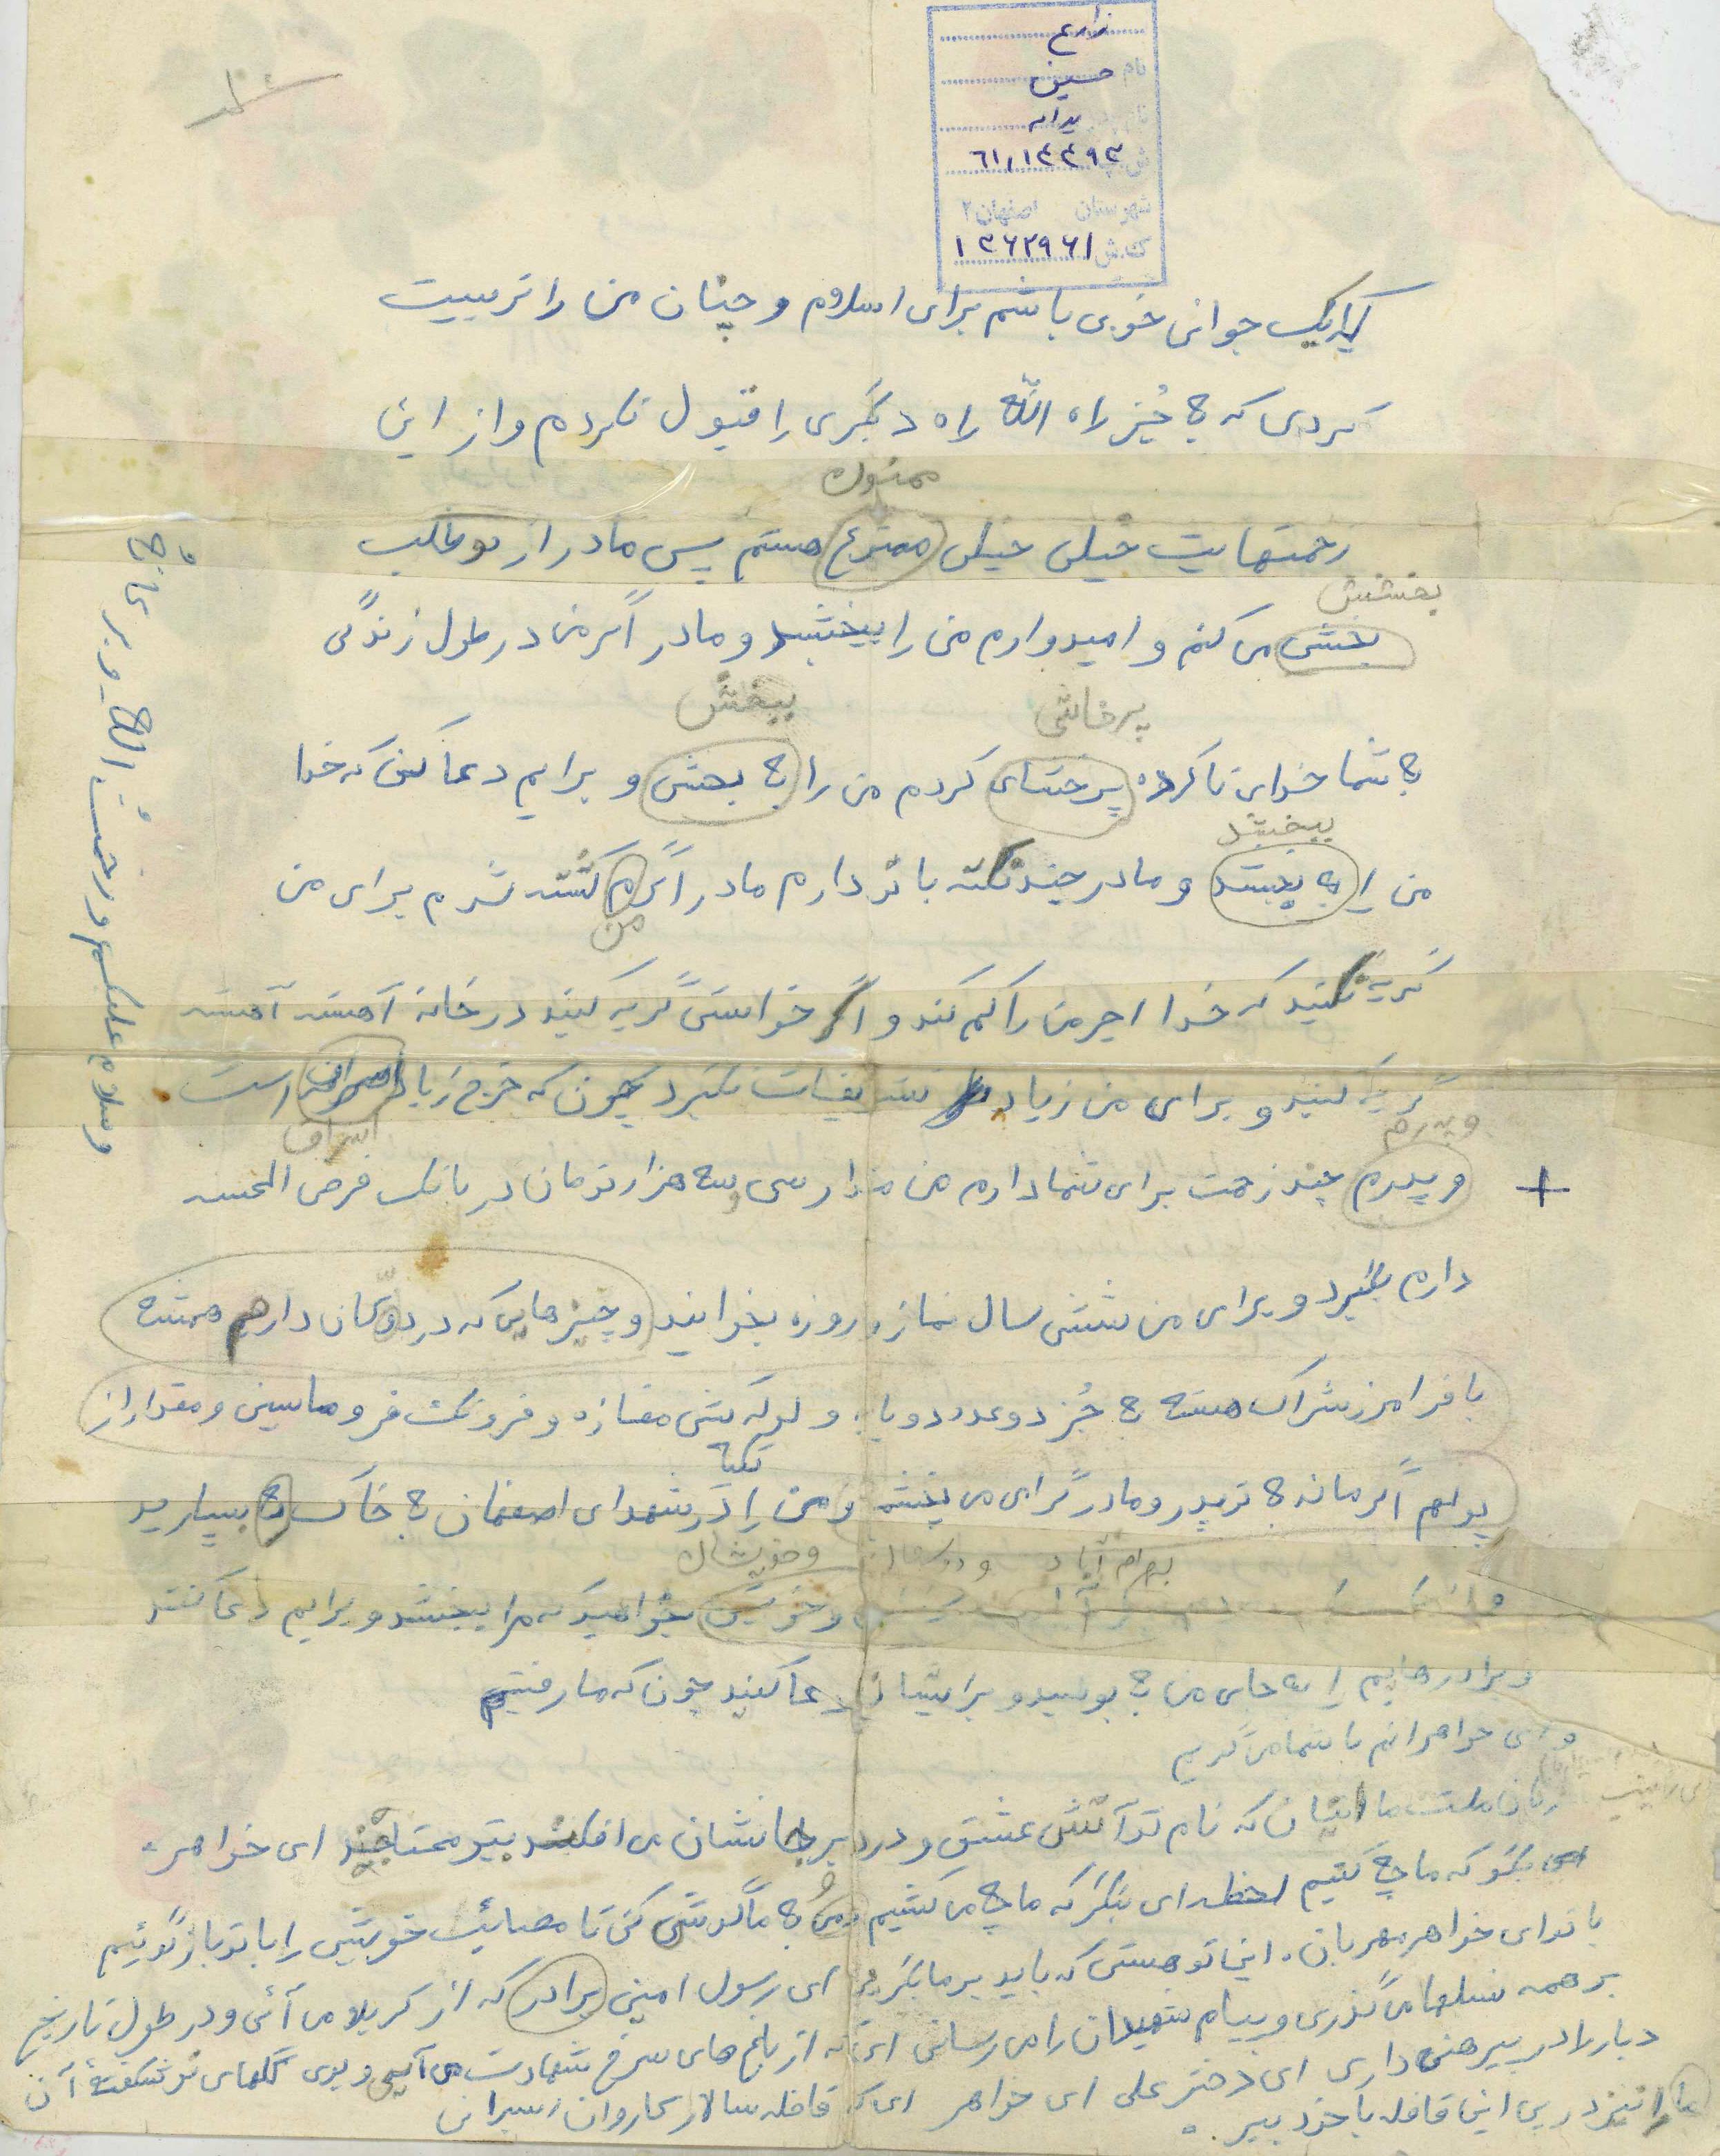 زارع
نام حسین
یداله
۶۱٫۱۴۴۹۳
شهرستان اصفهان ۲
کد.ش ۱۳۶۲۹۶۱
یک جوانی خوبی باشم برای اسلام و چنان من را تربیت
کردی که به جُز راه الله راه دیگری را قبول نکردم و از این
ممنون
زحمتهایت خیلی خیلی هستم پس مادر از تو طلب
بخشش
بخشی می کنم و امیدوارم من را ببخشید و مادر اگر من در طول زندگی
پرخاشی ببخش
به شما خدایی ناکرده پرخشای کردم من را به بخش و برایم دعا کن که خدا
ببخشد
من را به بخشد و مادر چند نکته با تو دارم مادر اگر م کشته شدم برای من
من
گریه نکنید که خدا اجر من را کم کند و اگر خواستی گریه کنید در خانه آهسته آهسته
گریه کنید و برای من زیاد تشریفات نگیرد چون که خرج زیاد است
اسراف و پدرم
+ و پدرم چند زحمت برای شما دارم من مقدار سی و سه هزار تومان در بانک قرض الحسنه
دارم بگیرد و برای من شش سال نماز و روزه بخرانید و چیزهایی که در دوکان دارم همشه
با فرامرز شراک هسته به جُز دو عدد دریا و مغازه و ماسین و مقدار از
پولهم اگر مانده به تو پدر و مادر گرامی می بخشم و من را در شهدای اصفهان به خاک به بسپارید
تکیه
بهرام آباد و دوستان و خویشان
و خویش بخواهید که مرا ببخشد و برایم دعا کنند
و برادرهایم را به جای من به بوسید و برایشان دعا کنید چون که ما رفتیم
و ای خواهرانم با شما می گویم
زنان ملت ما اینان که نام تو آتش عشق و درد بر جانشان می افکند بتو محتاجند ای خواهر
بگو که ما چه کنیم لحظه ای بنگر که ما چه می کشیم به ما گوش کن تا مصائب خویش را با تو باز گوئیم
با تو ای خواهر مهربان. این تو هستی که باید بر ما بگریی ای رسول امینی برادر که از کربلا می آئی و در طول تاریخ
بر همه نسلها می گذری و پیام شهیدان را می رسانی ای که از باغ های سرخ شهادت می آیی و بوی گلهای نو شکفته آن
دیار را در پیرهن داری ای دختر علی ای خواهر ای که قافله سالار کاروان اسیرانی
ما را نیز در پی این قافله با خود ببر.
وسلام علیکم ورحمت الله و برکاته